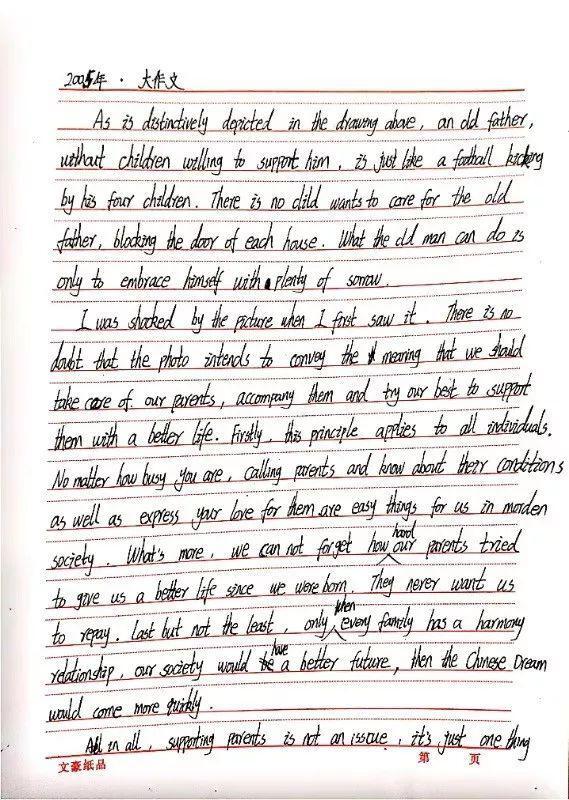 2005年 · 大作文
As is distinctively depicted in the drawing above, an old father,
without children willing to support him, is just like a football kicking
by his four children. There is no child wants to care for the old
father, blocking the door of each house. What the old man can do is
only to embrace himself with plenty of sorrow.
I was shocked by the picture when I first saw it. There is no
doubt that the photo intends to convey the meaning that we should
take care of our parents, accompany them and try our best to support
them with a better life. Firstly, this principle applies to all individuals.
No matter how busy you are, calling parents and know about their conditions
as well as express your love for them are easy things for us in morden
society. What's more, we can not forget how hard our parents tried
to give us a better life since we were born. They never want us
to repay. Last but not the least, only when every family has a harmony
relationship, our society would have a better future, then the Chinese Dream
would come more quickly.
All in all, supporting parents is not an issue, it's just one thing
文豪纸品 第 页